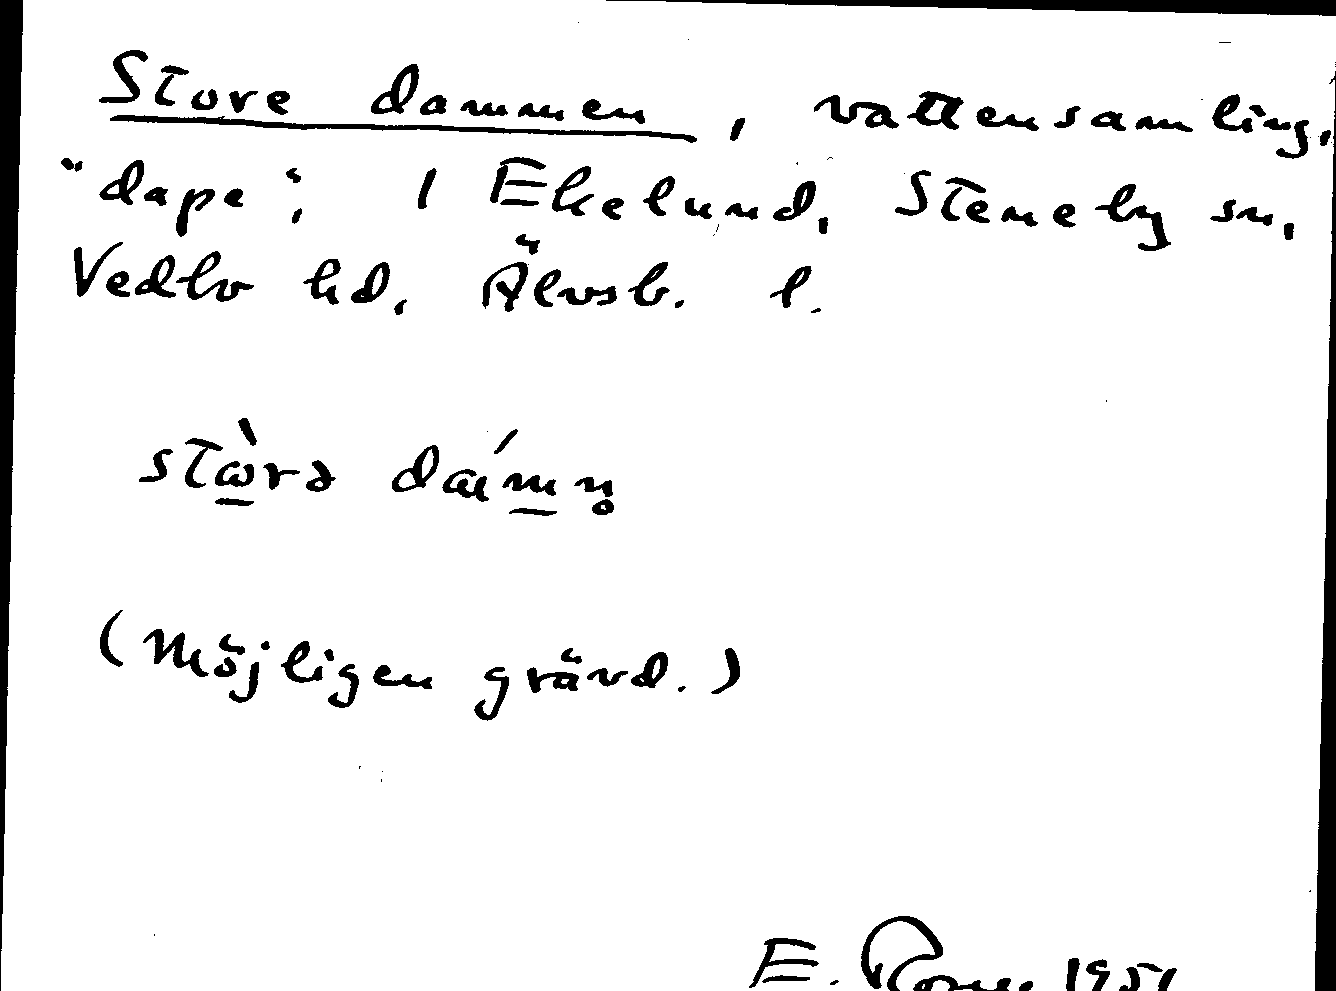 Store dammen, vattensamling,
"dape", i Ekelund, Steneby sn,
Vedbo hd, Älvsb. l.
stὼrə dámn̥
(Möjligen grävd.)
E. 1951